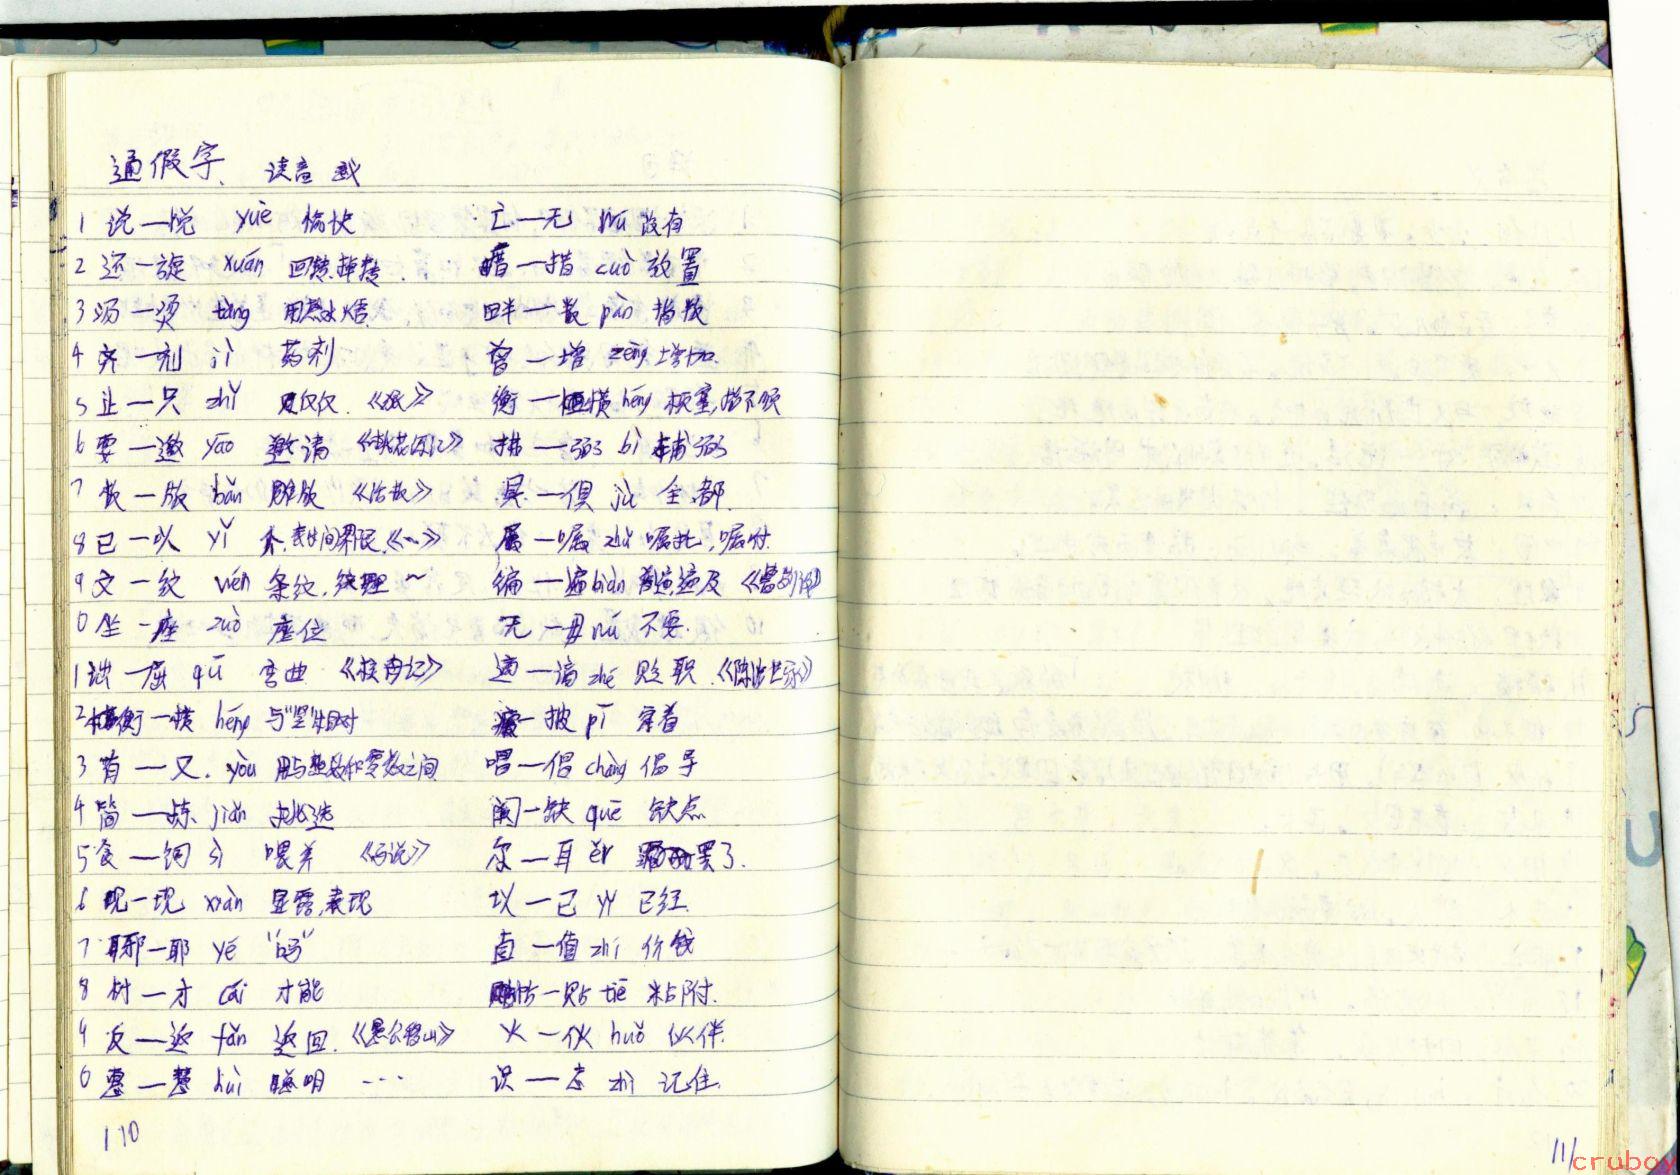 通假字、 读音 或
1 说—悦 yuè 愉快
2 还—旋 xuán 回转,掉转.
3 汤—烫 tàng 用热水焐.
4 齐—剂 jì 药剂
5 止—只 zhǐ 仅仅.《狼》
6 要—邀 yāo 邀请《桃花源记》
7 扳 bǎn
8 已—以 yǐ 表时间界限.《〃》
9 文—纹 wén 条纹,纹理 ~
0 坐—座 zuò 座位
1 诎—屈 qū 弯曲 《核舟记》
2 衡—横 héng 与"竖"相对
3 有—又. yòu 用与整数和零数之间
4 简—拣 jiǎn 挑选
5 食—饲 sì 喂养 《马说》
6 现 xiàn 显露,表现
7 邪—耶 yé "吗"
8 材—才 cái 才能
9 反—返 fǎn 返回.《愚公移山》
0 惠—慧 huì 聪明 ...
亡—无 wú 没有
措 cuò 放置
畔—叛 pàn 背叛
曾—增 zēng 增加.
衡—横 héng 梗塞,指不顺
拂—弼 bì 辅弼
具—俱 jù 全,都.
属—嘱 zhǔ 嘱托,嘱咐.
编—遍 biàn 普遍,遍及 《曹刿论》
无—毋 wú 不要.
適—谪 zhé 贬职.《陈涉世家》
被—披 pī 穿着
唱—倡 chàng 倡导
阙—缺 quē 缺点
尔—耳 ěr 罢了.
以—已 yǐ 已经.
直—值 zhí 价钱
帖—贴 tiē 粘附.
火—伙 huǒ 伙伴.
识—志 zhì 记住.
110
111
cruboy